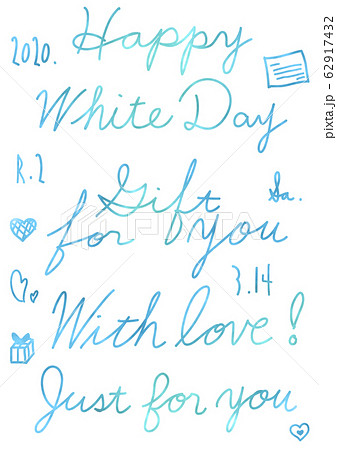 2020.
Happy
White Day
R.2
Gift
Sa.
for you
3.14
With love!
Just for you
PIXTA
pixta.jp - 62917432